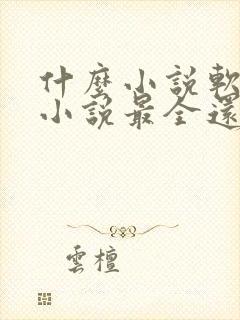 什麼小說軟
小說最全還
雲檀